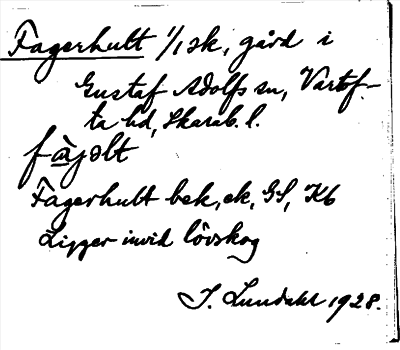 Fagerhult 1/1 sk, gård i
Gustaf Adolfs sn, Vartof-
ta hd, Skarab. l.
fàjəlt
Fagerhult bek, ek, GS, Kb
Ligger invid lövskog
J. Lundahl 1928.